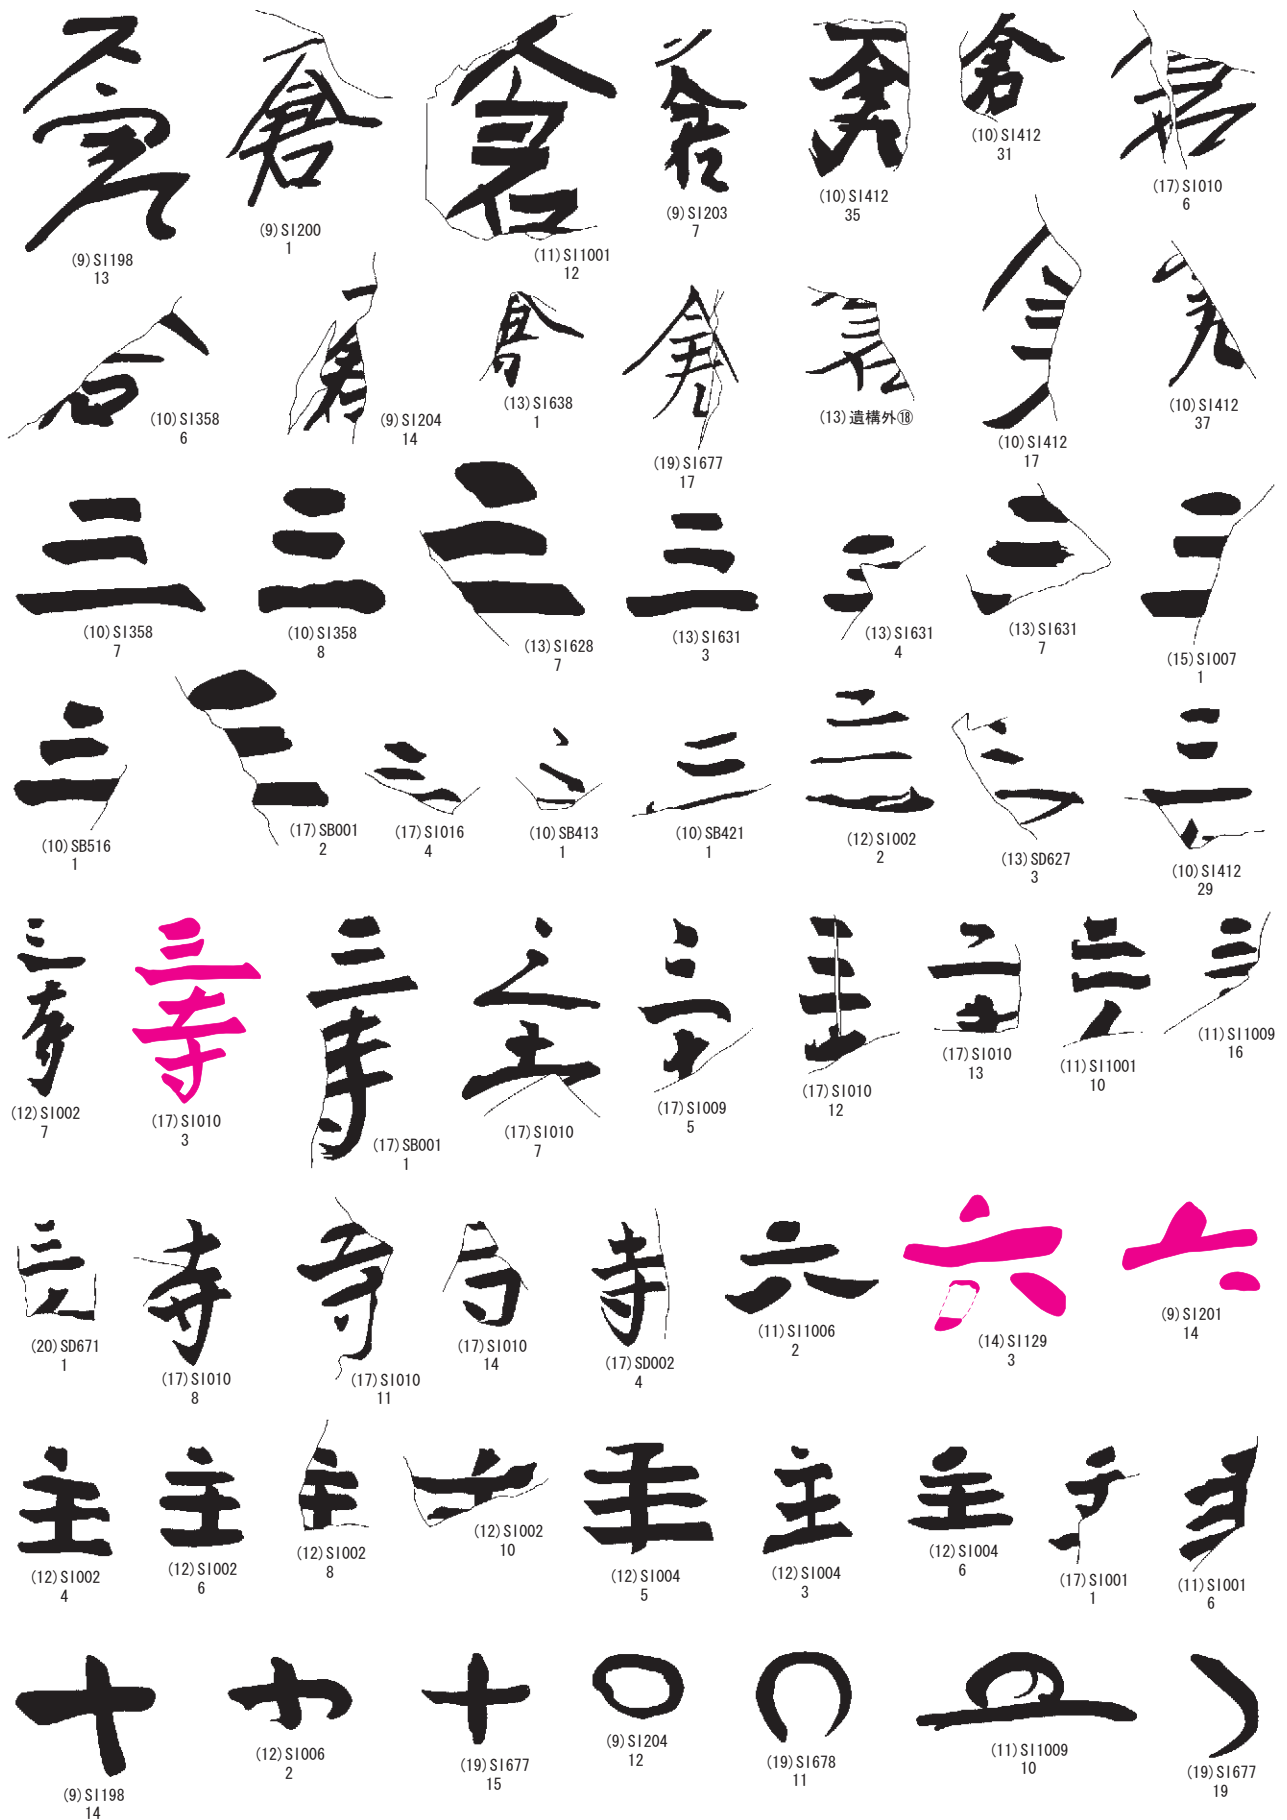 倉 倉 倉 倉 倉 倉 倉
(9)SI198 13 (9)SI200 1 (11)SI1001 12 (9)SI203 7 (10)SI412 35 (10)SI412 31 (17)SI010 6
倉 倉 倉
(10)SI358 6 (9)SI204 14 (13)SI638 1 (19)SI677 17 (13)遺構外⑱ (10)SI412 17 (10)SI412 37
三 三 三 三 三 三 三
(10)SI358 7 (10)SI358 8 (13)SI628 7 (13)SI631 3 (13)SI631 4 (13)SI631 7 (15)SI007 1
三 三 三 三 三
(10)SB516 1 (17)SB001 2 (17)SI016 4 (10)SB413 1 (10)SB421 1 (12)SI002 2 (13)SD627 3 (10)SI412 29
三寺 三寺 三寺 三 三 三 三
(12)SI002 7 (17)SI010 3 (17)SB001 1 (17)SI010 7 (17)SI009 5 (17)SI010 12 (17)SI010 13 (11)SI1001 10 (11)SI1009 16
三 寺 寺 寺 寺 六 六 六
(20)SD671 1 (17)SI010 8 (17)SI010 11 (17)SI010 14 (17)SD002 4 (11)SI1006 2 (14)SI129 3 (9)SI201 14
主 主 主 主 主 主
(12)SI002 4 (12)SI002 6 (12)SI002 8 (12)SI002 10 (12)SI004 5 (12)SI004 3 (12)SI004 6 (17)SI001 1 (11)SI001 6
十 十 〇
(9)SI198 14 (12)SI006 2 (19)SI677 15 (9)SI204 12 (19)SI678 11 (11)SI1009 10 (19)SI677 19